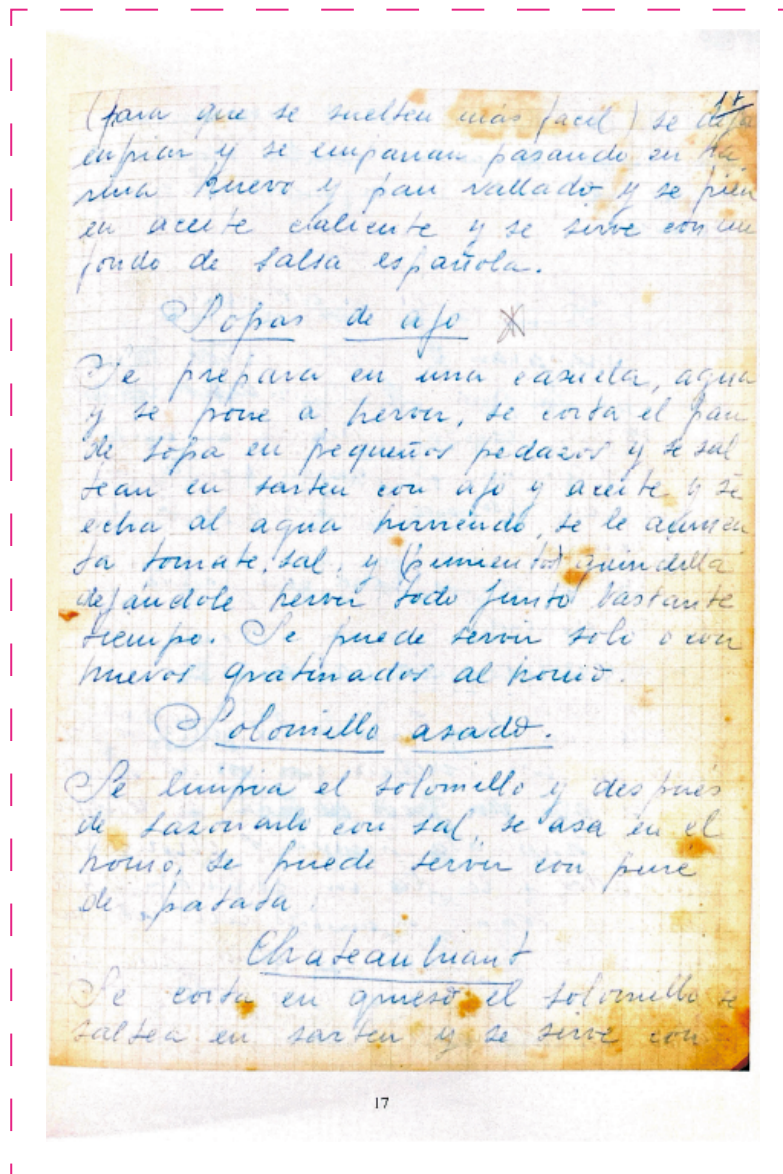 17
(para que se suelten más facil) se deja
enfriar y se empanan pasando en ha
rina huevo y pan rallado y se frien
en aceite caliente y se sirve con un
fondo de salsa española.
Sopas de ajo
Se prepara en una casuela, agua
y se pone a hervir, se corta el pan
de sopa en pequeños pedazos y se sal
tean en sarten con ajo y aceite y se
echa al agua hirviendo, se le aumen
ta tomate, sal, y (pimiento) guindilla
dejándole hervir todo junto bastante
tiempo. Se puede servir solo o con
huevos gratinados al horno.
Solomillo asado.
Se limpia el solomillo y despues
de sazonarlo con sal, se asa en el
horno, se puede servir con puré
de patata
Chateaubriant
Se corta en grueso el solomillo se
saltea en sarten y se sirve con
17